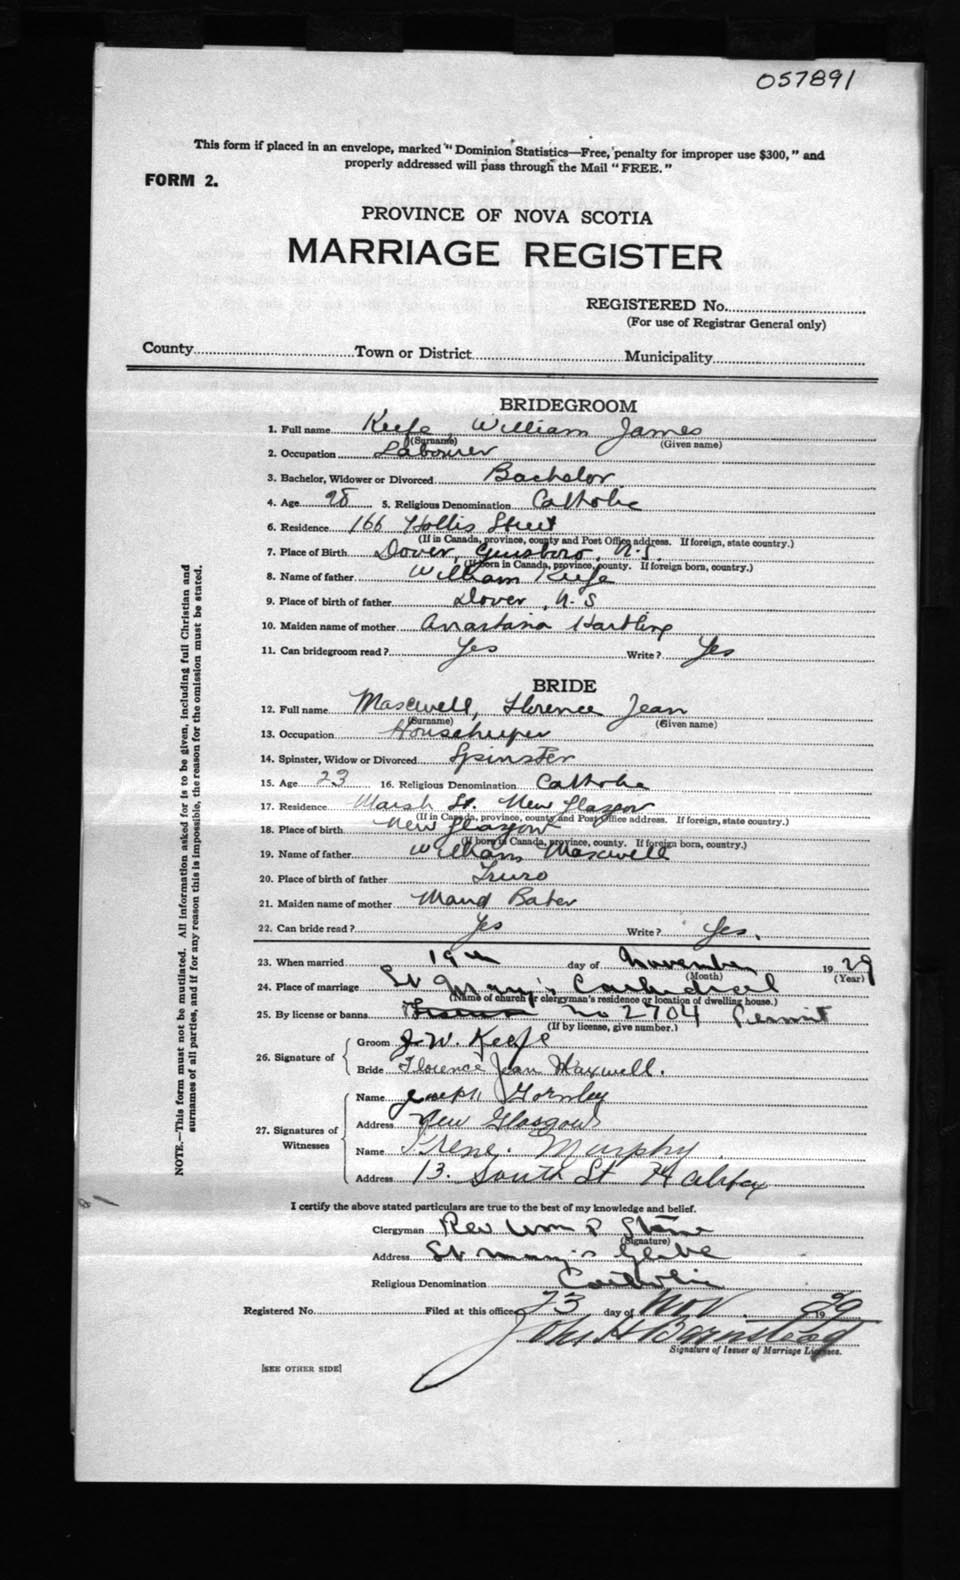 057891
This form if placed in an envelope, marked "Dominion Statistics—Free, penalty for improper use $300," and
properly addressed will pass through the Mail "FREE."
FORM 2.
PROVINCE OF NOVA SCOTIA
MARRIAGE REGISTER
REGISTERED No.
(For use of Registrar General only)
County Town or District Municipality
NOTE.—This form must not be mutilated. All information asked for is to be given, including full Christian and
surnames of all parties, and if for any reason this is impossible, the reason for the omission must be stated.
BRIDEGROOM
1. Full name Keefe, William James
(Surname) (Given name)
2. Occupation Labourer
3. Bachelor, Widower or Divorced Bachelor
4. Age 28 5. Religious Denomination Catholic
6. Residence 166 Hollis Street
(If in Canada, province, county and Post Office address. If foreign, state country.)
7. Place of Birth Dover, Guisboro, N.S.
(If born in Canada, province, county. If foreign born, country.)
8. Name of father William Keefe
9. Place of birth of father Dover, N.S
10. Maiden name of mother Anastasia
11. Can bridegroom read? Yes Write? Yes
BRIDE
12. Full name Maxwell, Florence Jean
(Surname) (Given name)
13. Occupation Housekeeper
14. Spinster, Widow or Divorced Spinster
15. Age 23 16. Religious Denomination Catholic
17. Residence Marsh St. New Glasgow
(If in Canada, province, county and Post Office address. If foreign, state country.)
18. Place of birth New Glasgow
(If born in Canada, province, county. If foreign born, country.)
19. Name of father William Maxwell
20. Place of birth of father Truro
21. Maiden name of mother Maud
22. Can bride read? Yes Write? Yes.
23. When married 19th day of November 1929
(Month) (Year)
24. Place of marriage St Mary's Cathedral
(Name of church or clergyman's residence or location of dwelling house.)
25. By license or banns No 2704 Permit
(If by license, give number.)
26. Signature of
Groom J. W. Keefe
Bride Florence Jean Maxwell.
27. Signatures of
Witnesses
Name Joseph Gormley
Address New Glasgow
Name Irene Murphy
Address 13 South St Halifax
I certify the above stated particulars are true to the best of my knowledge and belief.
Clergyman Rev Wm P
(Signature)
Address St Mary's Glebe
Religious Denomination Catholic
Registered No. Filed at this office 23 day of Nov. 1929
John H Barnstead
Signature of Issuer of Marriage Licenses.
[SEE OTHER SIDE]